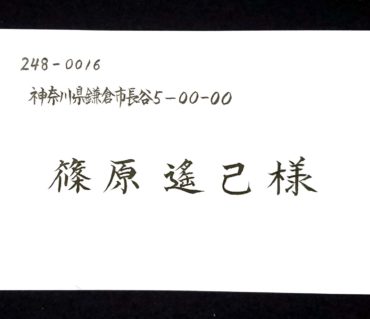 248-0016
神奈川県鎌倉市長谷5-00-00
篠原遙己様